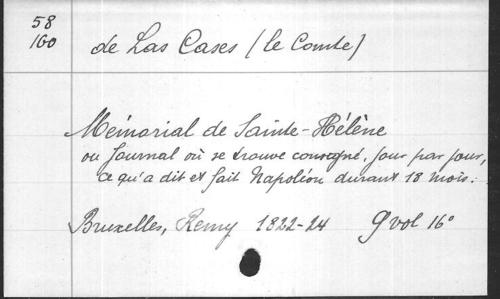 58
160
de Las Cases (le Comte)
Mémorial de Sainte-Hélène
ou Journal où se trouve consigné, jour par jour,
ce qu'a dit et fait Napoléon durant 18 mois.
Bruxelles, Remy 1822-24 9 vol 16°